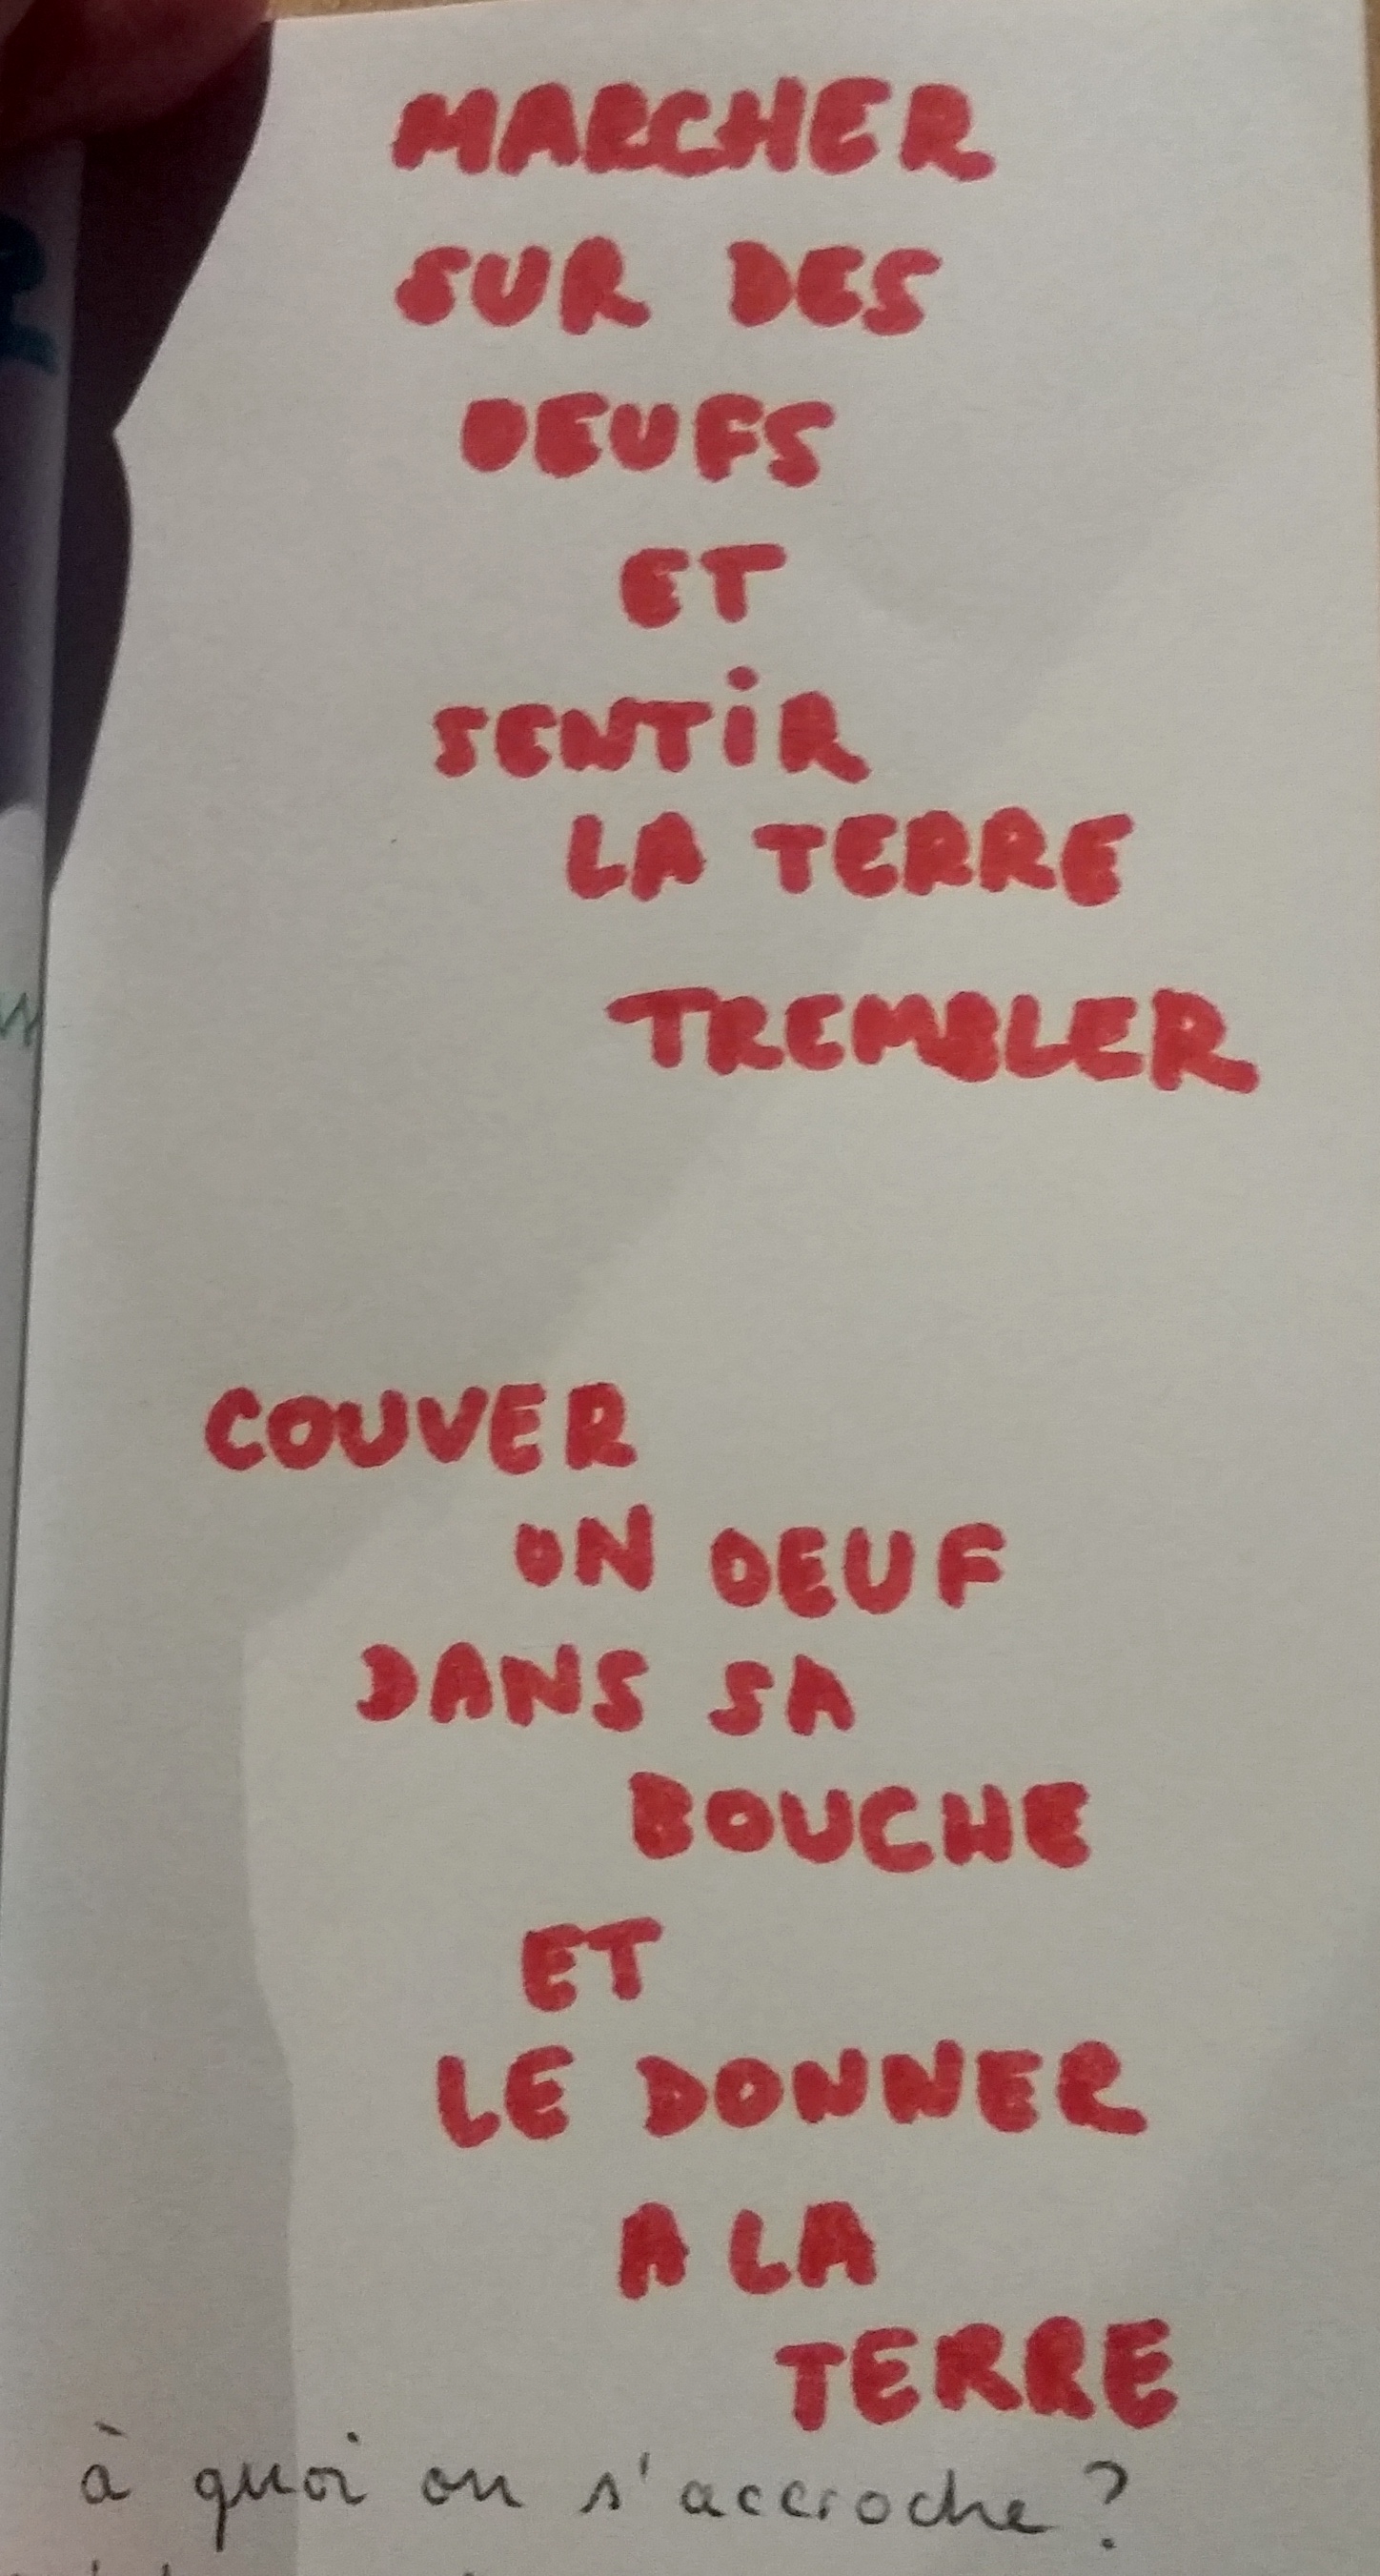 MARCHER
SUR DES
OEUFS
ET
SENTiR
LA TERRE
TREMBLER
COUVER
UN OEUF
DANS SA
BOUCHE
ET
LE DONNER
A LA
TERRE
à quoi on s'accroche ?